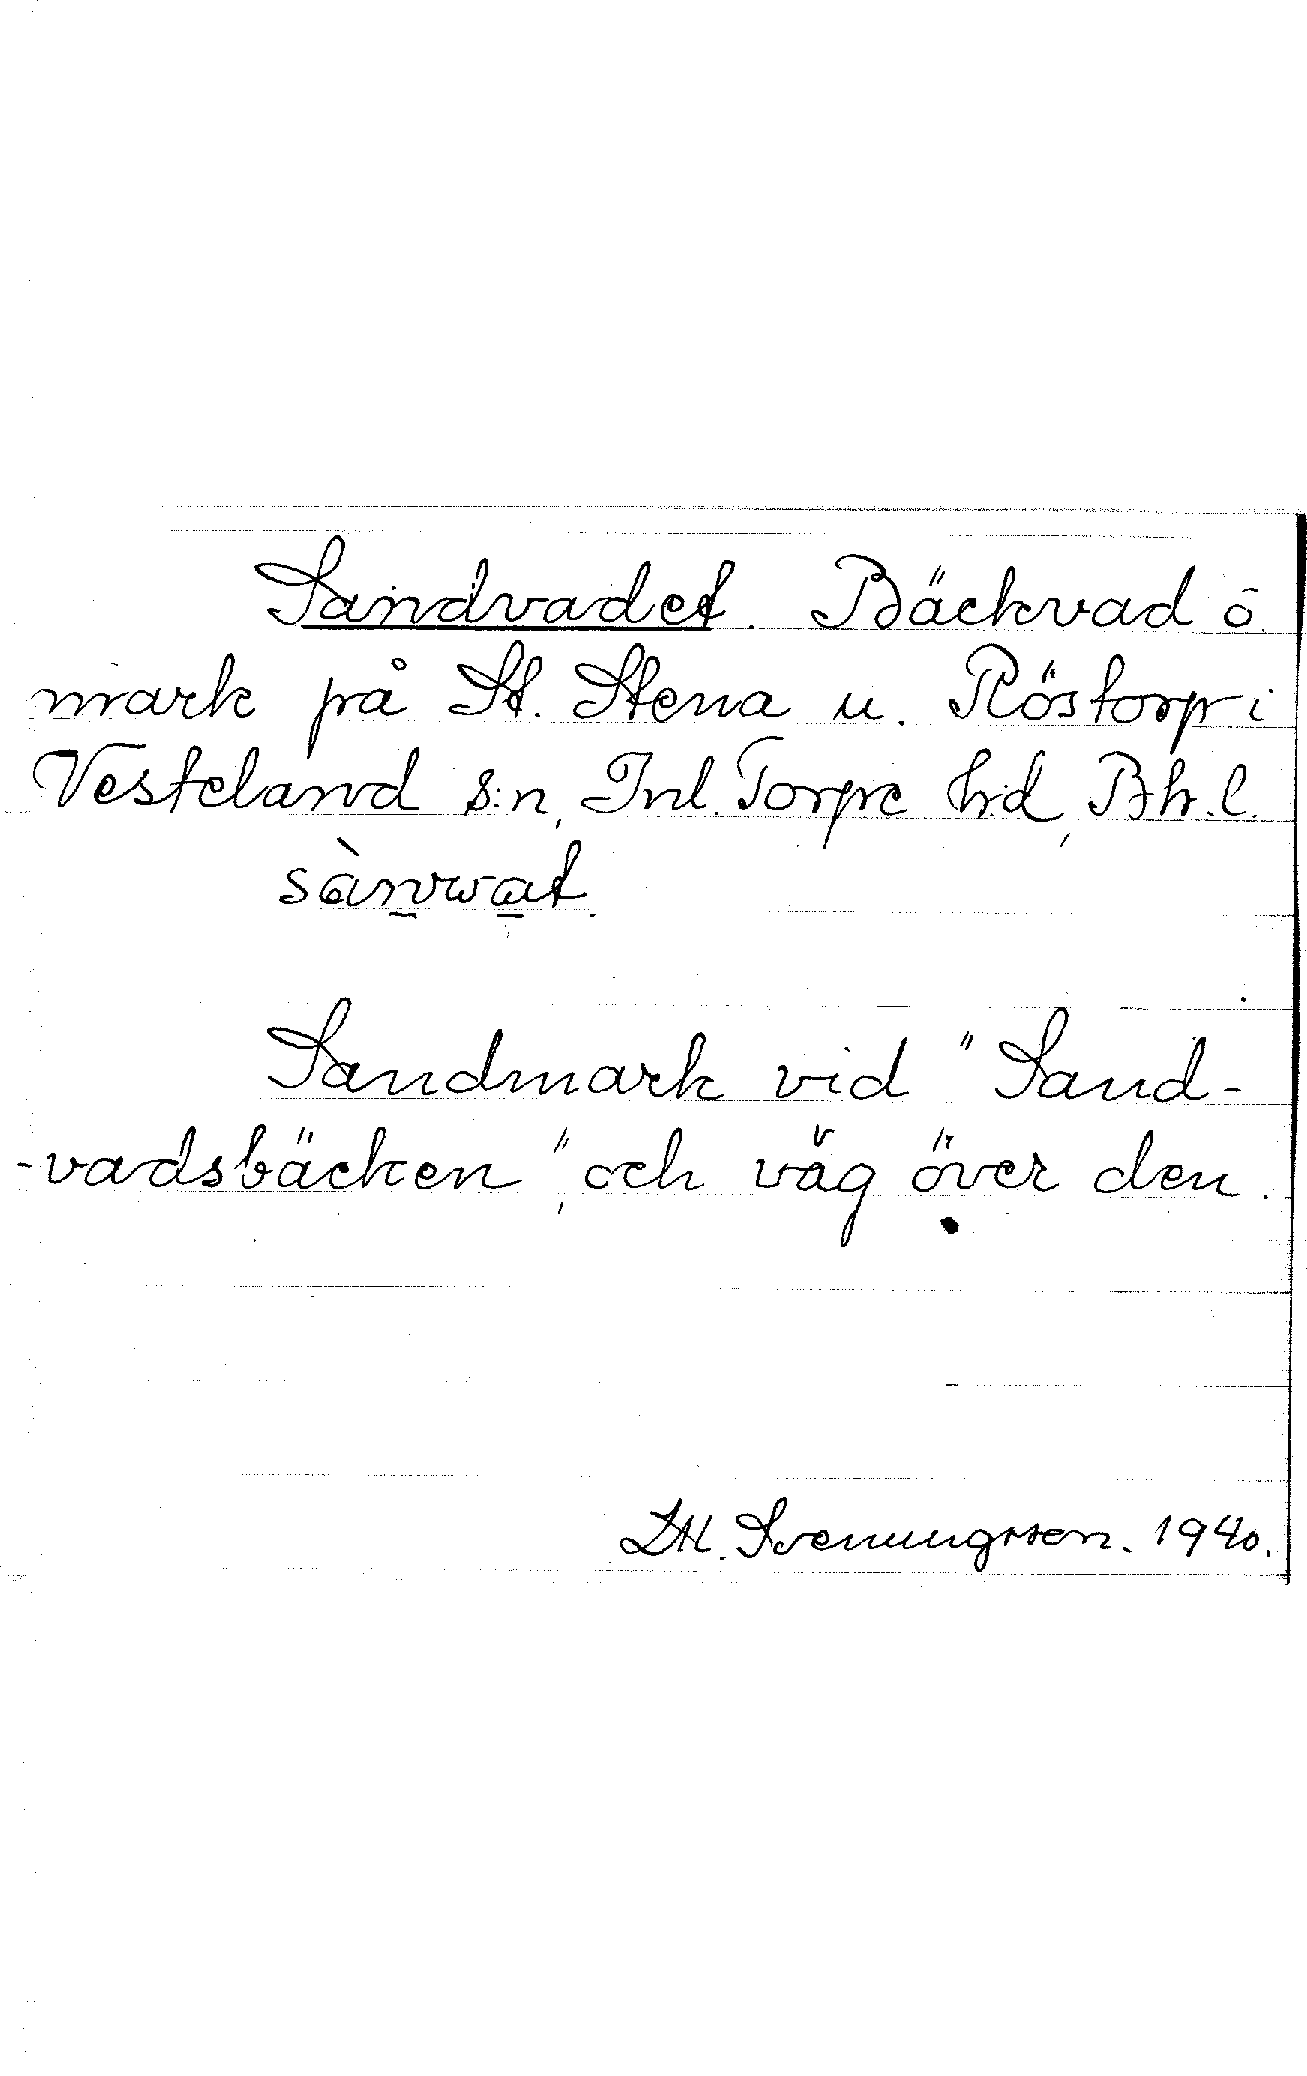 Sandvadet. Bäckvad ö.
mark på St. Stena u. Röstorp i
Vesteland s:n, Inl. Torpe h:d, Bh.l.
sànvwat.
Sandmark vid "Sand-
-vadsbäcken", och väg över den.
Svenungsson. 1940.